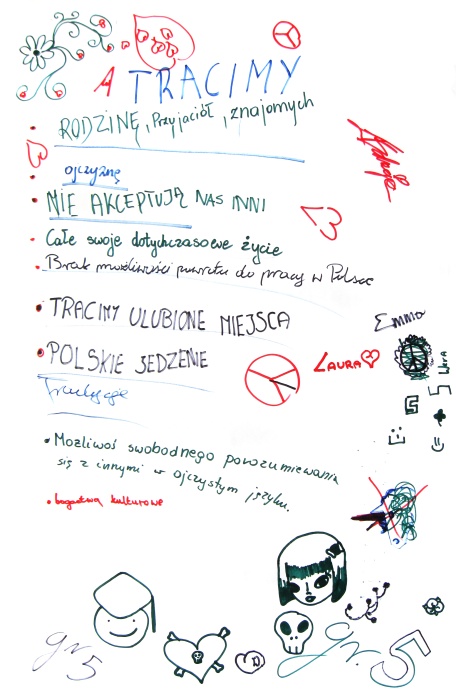 A TRACIMY
RODZINĘ, Przyjaciół, znajomych
ojczyznę
NIE AKCEPTUJĄ NAS INNI
Całe swoje dotychczasowe życie
Brak możliwości powrotu do pracy w Polsce
TRACIMY ULUBIONE MIEJSCA
POLSKIE JEDZENIE
Tradycje
Możliwoś swobodnego porozumiewania
się z innymi w ojczystym języku.
bogactwa kulturowe
Emma
LAURA
Wera
gr 5
gr. 5